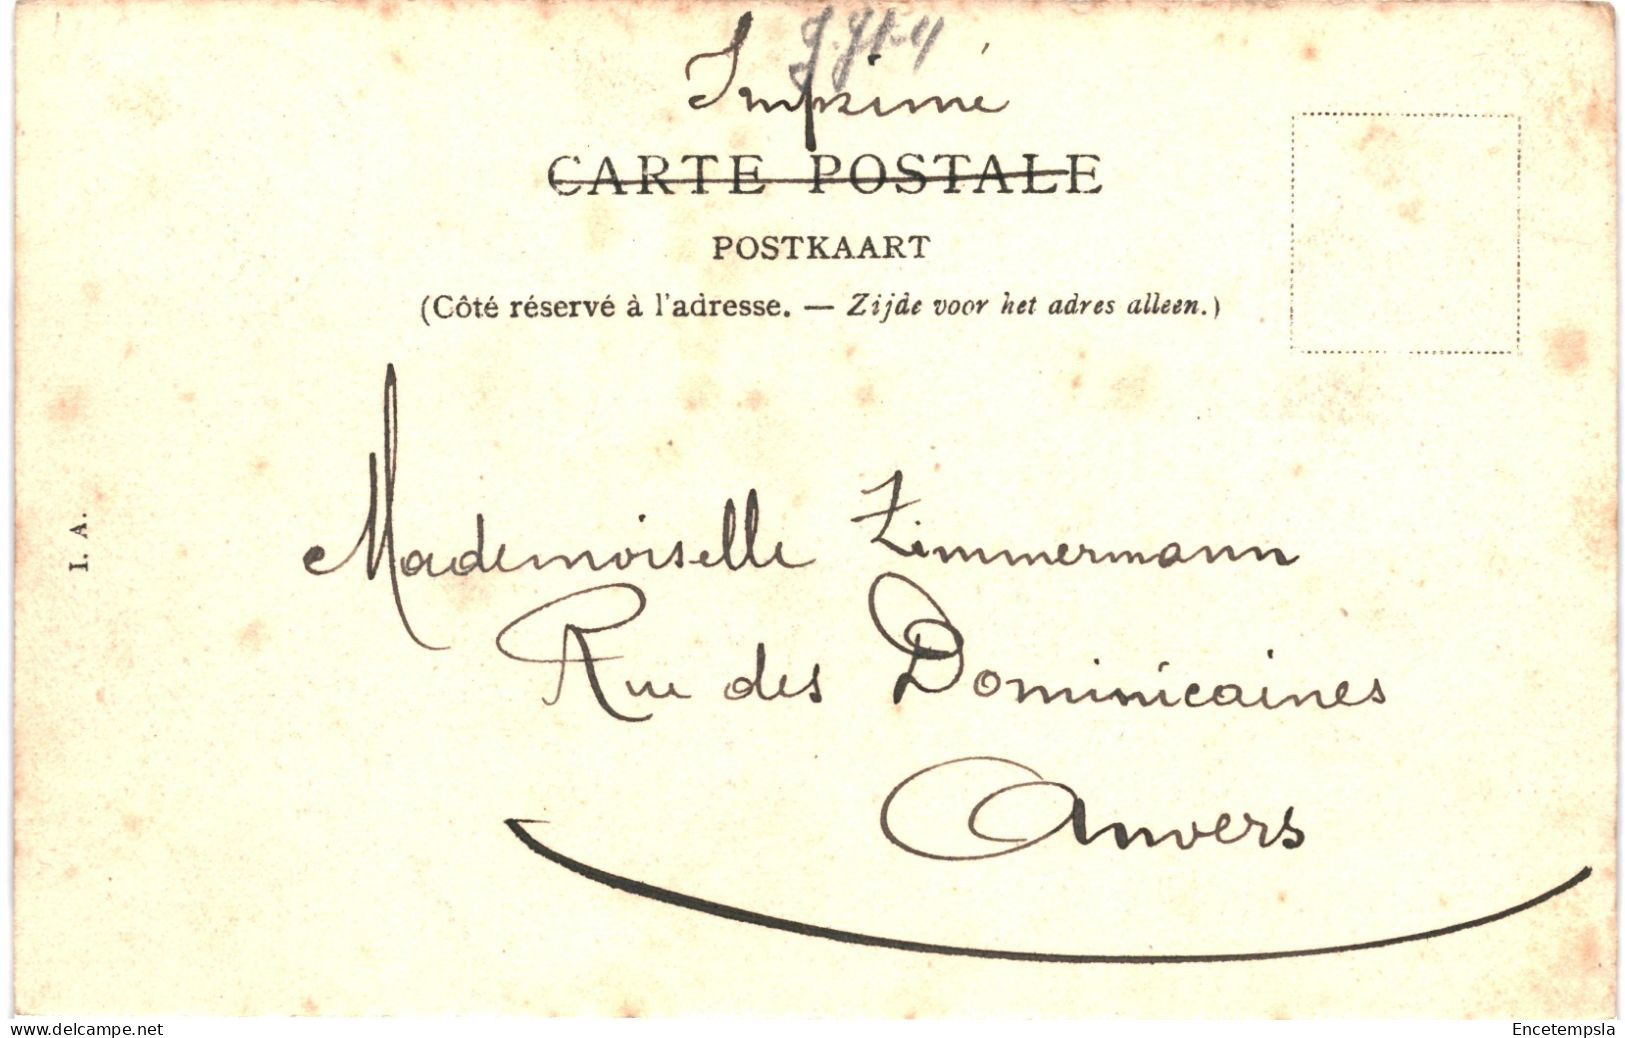 Imprimé
CARTE POSTALE
POSTKAART
(Côté réservé à l'adresse. — Zijde voor het adres alleen.)
I. A.
Mademoiselle Zimmermann
Rue des Dominicaines
Anvers
delcampe.net
Encetempsla